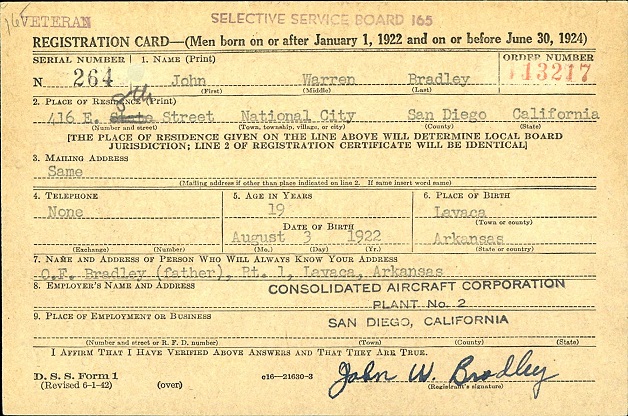 165
VETERAN
SELECTIVE SERVICE BOARD 165
REGISTRATION CARD—(Men born on or after January 1, 1922 and on or before June 30, 1924)
SERIAL NUMBER 1. NAME (Print) ORDER NUMBER
N 264 John Warren Bradley 13217
(First) (Middle) (Last)
2. PLACE OF RESIDENCE (Print)
8th
416 E. State Street National City San Diego California
(Number and street) (Town, township, village, or city) (County) (State)
[THE PLACE OF RESIDENCE GIVEN ON THE LINE ABOVE WILL DETERMINE LOCAL BOARD
JURISDICTION; LINE 2 OF REGISTRATION CERTIFICATE WILL BE IDENTICAL]
3. MAILING ADDRESS
Same
(Mailing address if other than place indicated on line 2. If same insert word same)
4. TELEPHONE 5. AGE IN YEARS 6. PLACE OF BIRTH
None 19 Lavaca
DATE OF BIRTH (Town or county)
August 3 1922 Arkansas
(Exchange) (Number) (Mo.) (Day) (Yr.) (State or country)
7. NAME AND ADDRESS OF PERSON WHO WILL ALWAYS KNOW YOUR ADDRESS
O.F. Bradley (father), Rt. 1, Lavaca, Arkansas
8. EMPLOYER'S NAME AND ADDRESS CONSOLIDATED AIRCRAFT CORPORATION
PLANT No. 2
9. PLACE OF EMPLOYMENT OR BUSINESS SAN DIEGO, CALIFORNIA
(Number and street or R. F. D. number) (Town) (County) (State)
I AFFIRM THAT I HAVE VERIFIED ABOVE ANSWERS AND THAT THEY ARE TRUE.
D. S. S. Form 1
(Revised 6-1-42) (over) c16—21630-3 John W. Bradley
(Registrant's signature)